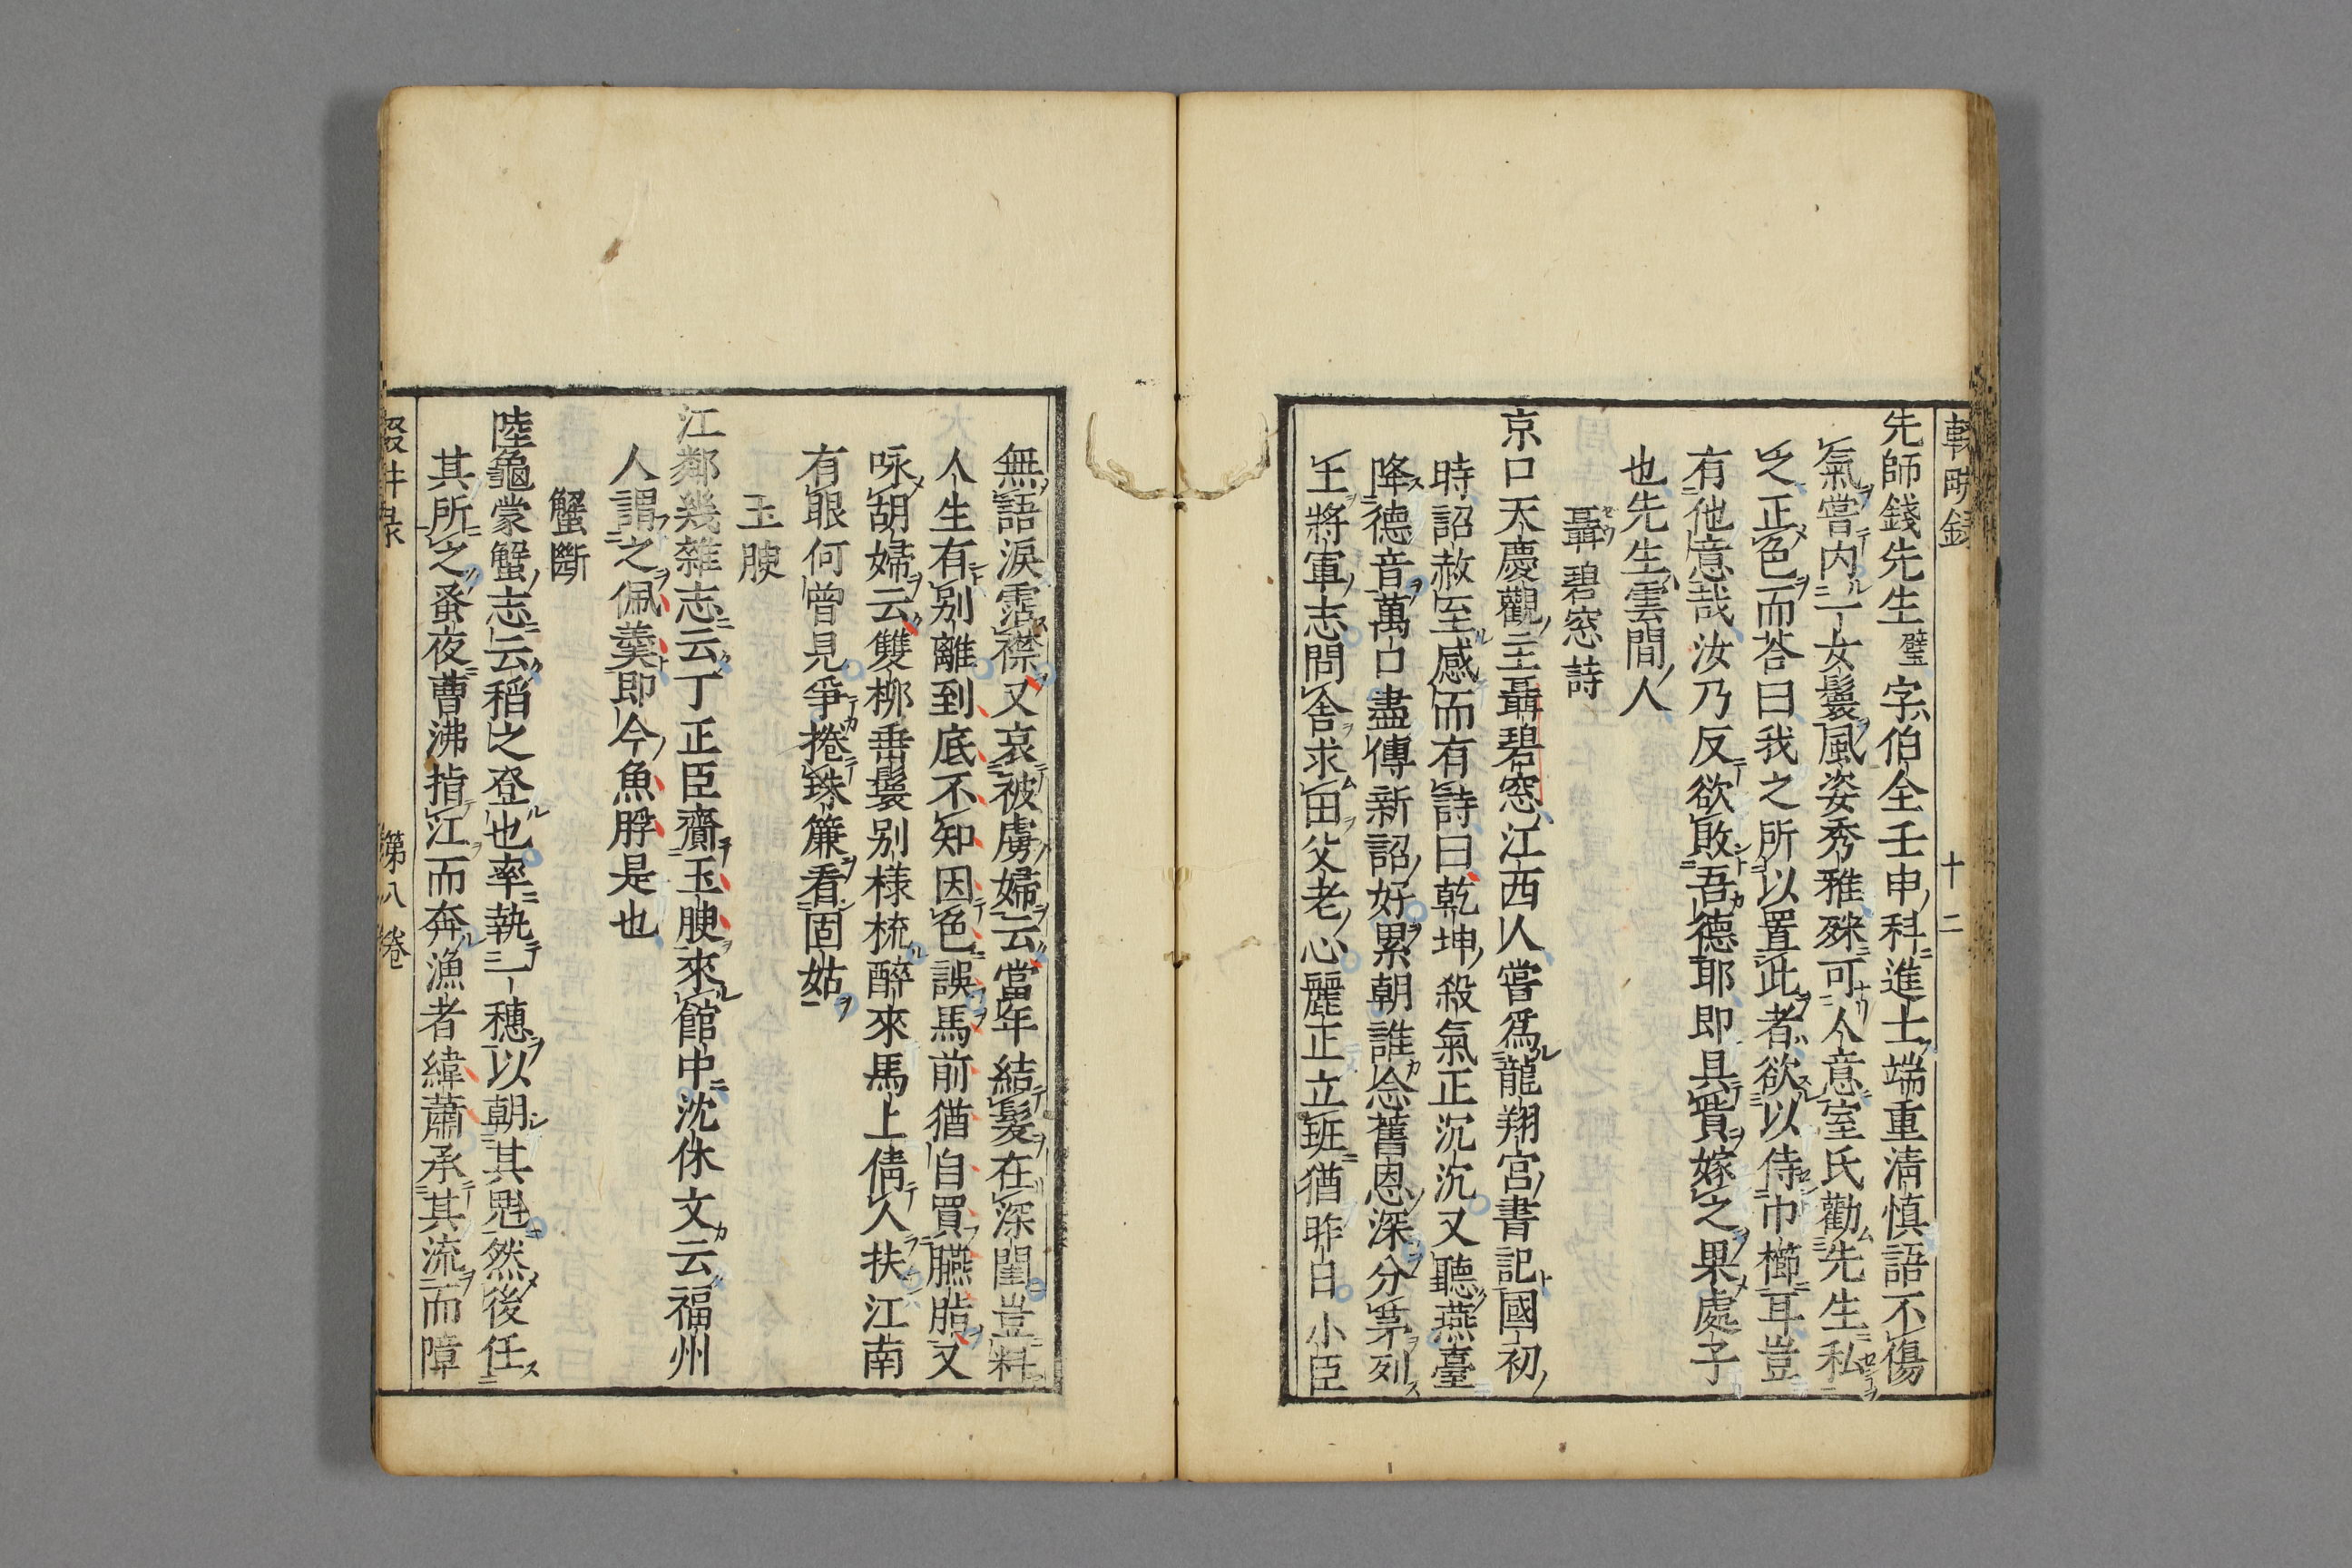 輟畊録
十二
先師錢先生璧字伯全壬申科進士端重清慎語不傷
氣嘗内一女鬟風姿秀雅殊可人意室氏勸先生私
之正色而荅曰我之所以置此者欲以侍巾櫛耳豈
有他意哉汝乃反欲敗吾德耶即具貲嫁之果處子
也先生雲間人
聶碧窓詩
京口天慶觀主聶碧窓江西人嘗爲龍翔宮書記國初
時詔赦至感而有詩曰乾坤殺氣正沉沉又聽燕臺
降德音萬口盡傳新詔好累朝誰念舊恩深分茅列
土將軍志問舎求田父老心麗正立班猶昨日小臣
無語淚霑襟又哀被虜婦云當年結髮在深閨豈料
人生有别離到底不知因色誤馬前猶自買臙脂又
咏胡婦云雙栁垂鬟别様梳醉來馬上倩人扶江南
有眼何曾見爭捲珠簾看固姑
玉腴
江鄰幾雜志云丁正臣齎玉腴來館中沈休文云福州
人謂之佩羹即今魚脬是也
蟹斷
陸龜蒙蟹志云稻之登也率執一穗以朝其魁然後任
其所之蚤夜𩰾沸指江而奔漁者緯蕭承其流而障
第八卷